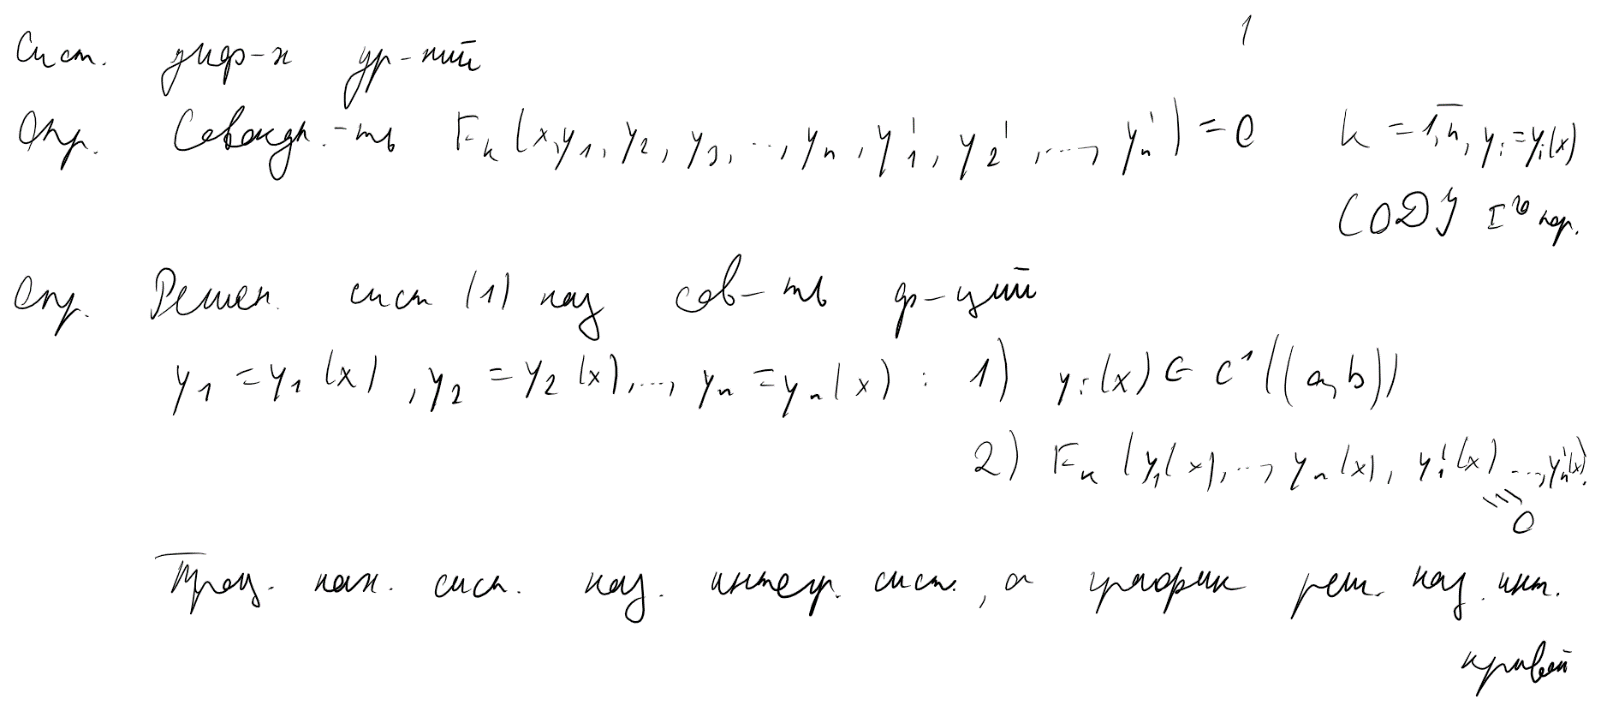 1
Сист. диф-х ур-ний
Опр. Совокуп.-ть F_k (x, y_1, y_2, y_3, ..., y_n, y_1', y_2', ..., y_n') = 0 k = \overline{1,n}, y_i = y_i(x)
СОДУ I^го пор.
Опр. Решен. сист (1) наз сов-ть ф-ций
y_1 = y_1(x), y_2 = y_2(x), ..., y_n = y_n(x) : 1) y_i(x) ∈ C^1((a,b))
2) F_k (y_1(x), ..., y_n(x), y_1'(x) ..., y_n'(x).
≡ 0
Проц. нах. сист. наз. интегр. сист., а график реш. наз. инт.
кривой